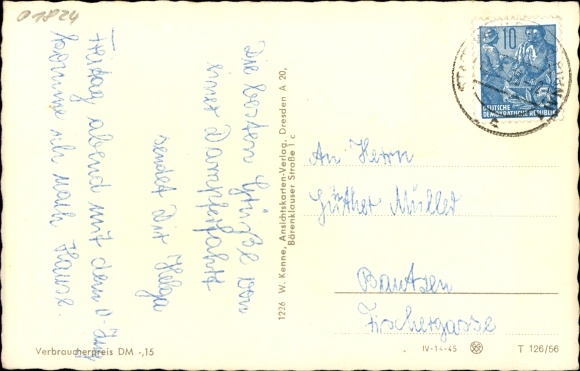 01824
Die besten Grüße von
einer Dampferfahrt
sendet Dir Helga
Freitag abend mit dem
komme ich nach Hause.
1226 W. Kenne, Ansichtskarten-Verlag, Dresden A 20,
Bärenklauser Straße 1 c
10
DEUTSCHE
DEMOKRATISCHE REPUBLIK
An Herrn
Günther Müller
Bautzen
Fischergasse
Verbraucherpreis DM -,15
IV-14-45
T 126/56